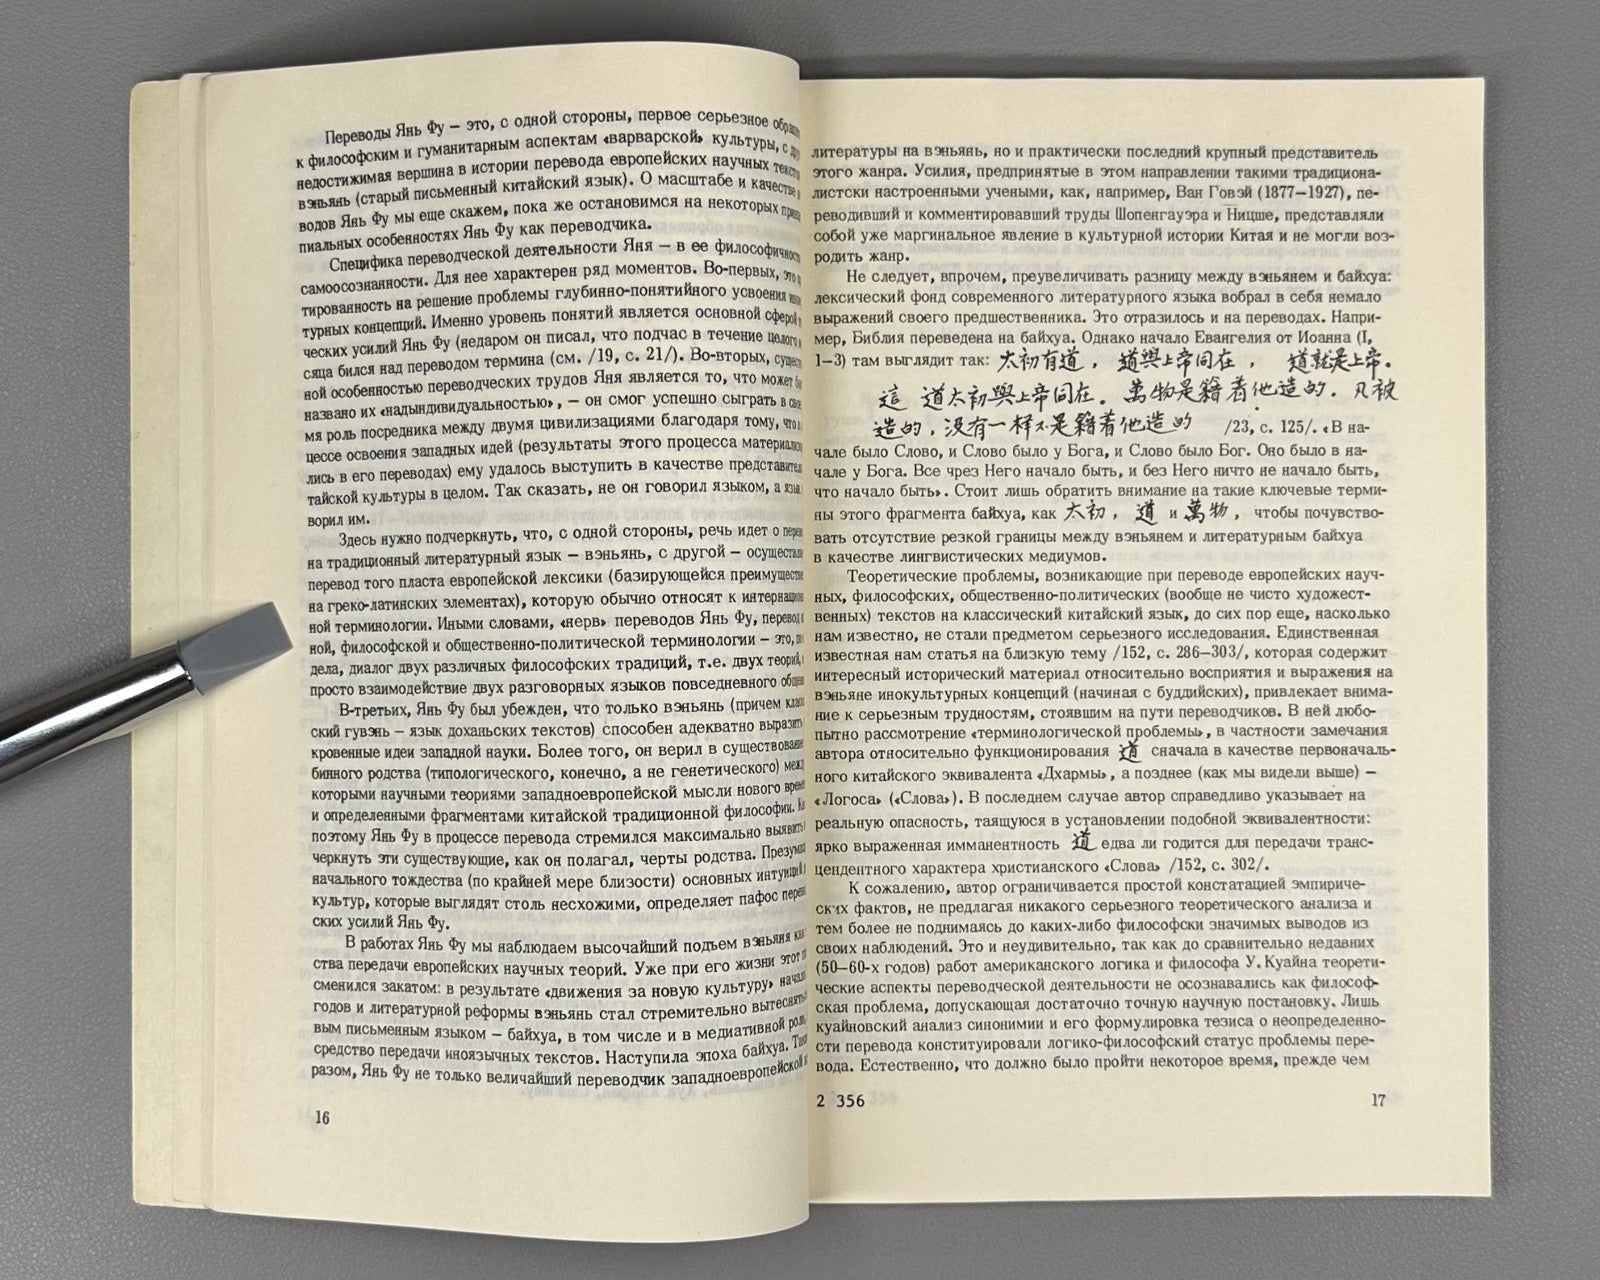 Переводы Янь Фу — это, с одной стороны, первое серьезное
к философским и гуманитарным аспектам «варварской» культуры, с
недостижимая вершина в истории перевода европейских научных
вэньянь (старый письменный китайский язык). О масштабе и качестве
водов Янь Фу мы еще скажем, пока же остановимся на некоторых
пиальных особенностях Янь Фу как переводчика.
Специфика переводческой деятельности Яня — в ее философичности
самоосознанности. Для нее характерен ряд моментов. Во-первых, это
тированность на решение проблемы глубинно-понятийного усвоения
турных концепций. Именно уровень понятий является основной сферой
ческих усилий Янь Фу (недаром он писал, что подчас в течение целого
сяца бился над переводом термина (см. /19, с. 21/). Во-вторых,
ной особенностью переводческих трудов Яня является то, что может
названо их «надындивидуальностью», — он смог успешно сыграть в
мя роль посредника между двумя цивилизациями благодаря тому, что
цессе освоения западных идей (результаты этого процесса
лись в его переводах) ему удалось выступить в качестве
тайской культуры в целом. Так сказать, не он говорил языком, а
ворил им.
Здесь нужно подчеркнуть, что, с одной стороны, речь идет о
на традиционный литературный язык — вэньянь, с другой —
перевод того пласта европейской лексики (базирующейся
на греко-латинских элементах), которую обычно относят к
ной терминологии. Иными словами, «нерв» переводов Янь Фу,
ной, философской и общественно-политической терминологии — это,
дела, диалог двух различных философских традиций, т.е. двух теорий,
просто взаимодействие двух разговорных языков повседневного
В-третьих, Янь Фу был убежден, что только вэньянь (причем
ский гувэнь — язык доханьских текстов) способен адекватно выразить
кровенные идеи западной науки. Более того, он верил в существование
бинного родства (типологического, конечно, а не генетического)
которыми научными теориями западноевропейской мысли нового
и определенными фрагментами китайской традиционной философии.
поэтому Янь Фу в процессе перевода стремился максимально выявить
черкнуть эти существующие, как он полагал, черты родства.
начального тождества (по крайней мере близости) основных интуиций
культур, которые выглядят столь несхожими, определяет пафос
ских усилий Янь Фу.
В работах Янь Фу мы наблюдаем высочайший подъем вэньяня как
ства передачи европейских научных теорий. Уже при его жизни этот
сменился закатом: в результате «движения за новую культуру»
годов и литературной реформы вэньянь стал стремительно вытесняться
вым письменным языком — байхуа, в том числе и в медиативной роли
средство передачи иноязычных текстов. Наступила эпоха байхуа.
разом, Янь Фу не только величайший переводчик западноевропейской
16
литературы на вэньянь, но и практически последний крупный представитель
этого жанра. Усилия, предпринятые в этом направлении такими традициона-
листски настроенными учеными, как, например, Ван Говэй (1877—1927), пе-
реводивший и комментировавший труды Шопенгауэра и Ницше, представляли
собой уже маргинальное явление в культурной истории Китая и не могли воз-
родить жанр.
Не следует, впрочем, преувеличивать разницу между вэньянем и байхуа:
лексический фонд современного литературного языка вобрал в себя немало
выражений своего предшественника. Это отразилось и на переводах. Напри-
мер, Библия переведена на байхуа. Однако начало Евангелия от Иоанна (I,
1—3) там выглядит так: 太初有道， 道與上帝同在， 道就是上帝。
這 道太初與上帝同在。萬物是籍着他造的。凡被
造的，没有一样不是籍着他造的 /23, с. 125/. «В на-
чале было Слово, и Слово было у Бога, и Слово было Бог. Оно было в на-
чале у Бога. Все чрез Него начало быть, и без Него ничто не начало быть,
что начало быть». Стоит лишь обратить внимание на такие ключевые терми-
ны этого фрагмента байхуа, как 太初, 道 и 萬物, чтобы почувство-
вать отсутствие резкой границы между вэньянем и литературным байхуа
в качестве лингвистических медиумов.
Теоретические проблемы, возникающие при переводе европейских науч-
ных, философских, общественно-политических (вообще не чисто художест-
венных) текстов на классический китайский язык, до сих пор еще, насколько
нам известно, не стали предметом серьезного исследования. Единственная
известная нам статья на близкую тему /152, с. 286—303/, которая содержит
интересный исторический материал относительно восприятия и выражения на
вэньяне инокультурных концепций (начиная с буддийских), привлекает внима-
ние к серьезным трудностям, стоявшим на пути переводчиков. В ней любо-
пытно рассмотрение «терминологической проблемы», в частности замечания
автора относительно функционирования 道 сначала в качестве первоначаль-
ного китайского эквивалента «Дхармы», а позднее (как мы видели выше) —
«Логоса» («Слова»). В последнем случае автор справедливо указывает на
реальную опасность, таящуюся в установлении подобной эквивалентности:
ярко выраженная имманентность 道 едва ли годится для передачи транс-
цендентного характера христианского «Слова» /152, с. 302/.
К сожалению, автор ограничивается простой констатацией эмпириче-
ских фактов, не предлагая никакого серьезного теоретического анализа и
тем более не поднимаясь до каких-либо философски значимых выводов из
своих наблюдений. Это и неудивительно, так как до сравнительно недавних
(50—60-х годов) работ американского логика и философа У. Куайна теорети-
ческие аспекты переводческой деятельности не осознавались как философ-
ская проблема, допускающая достаточно точную научную постановку. Лишь
куайновский анализ синонимии и его формулировка тезиса о неопределенно-
сти перевода конституировали логико-философский статус проблемы пере-
вода. Естественно, что должно было пройти некоторое время, прежде чем
2 356
17